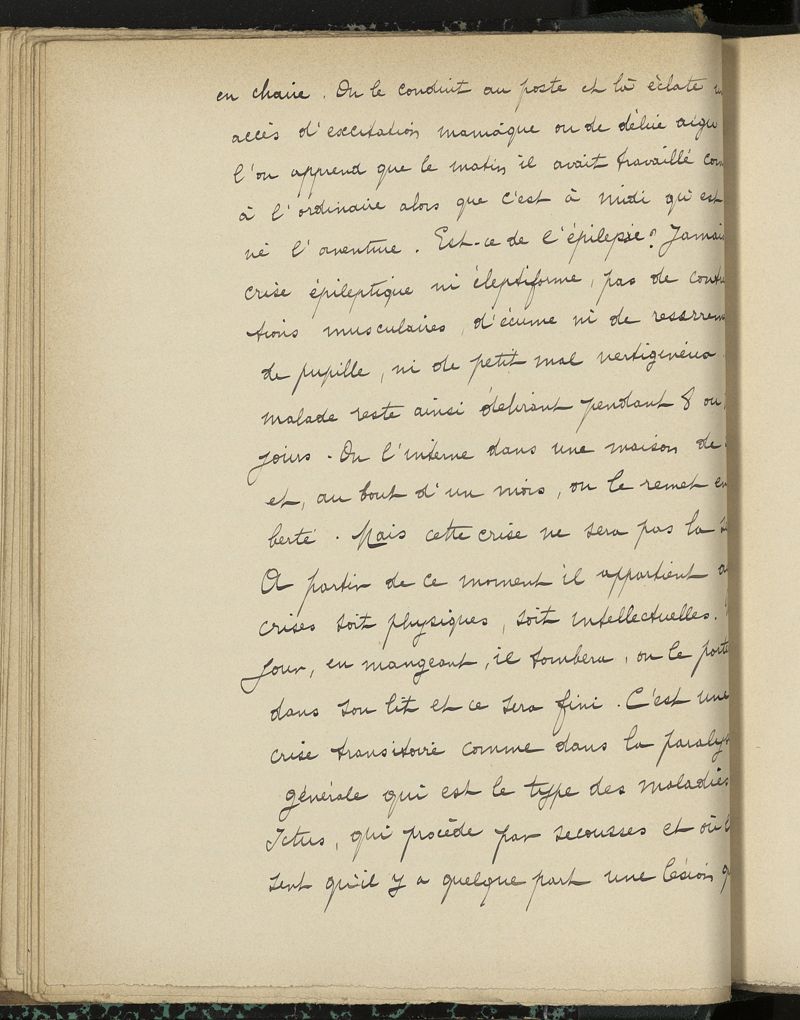 en chaire. On le conduit au poste et là éclate
accès d'excitation maniaque ou de délire aigu
l'on apprend que le matin il avait travaillé com
à l'ordinaire alors que c'est à midi qu'est
né l'aventure. Est-ce de l'épilepsie? Jamais
crise épileptique ni éleptiforme, pas de contr
tions musculaires, d'écume ni de resserrem
de pupille, ni de petit mal vertigineux.
malade reste ainsi délirant pendant 8 ou
jours. On l'interne dans une maison de
et, au bout d'un mois, on le remet en
berté. Mais cette crise ne sera pas la
A partir de ce moment il appartient a
crises soit physiques, soit intellectuelles.
jour, en mangeant, il tombera, on le porte
dans son lit et ce sera fini. C'est une
crise transitoire comme dans la paralys
générale qui est le type des maladies
Ictus, qui procède par secousses et où l
sent qu'il y a quelque part une lésion q